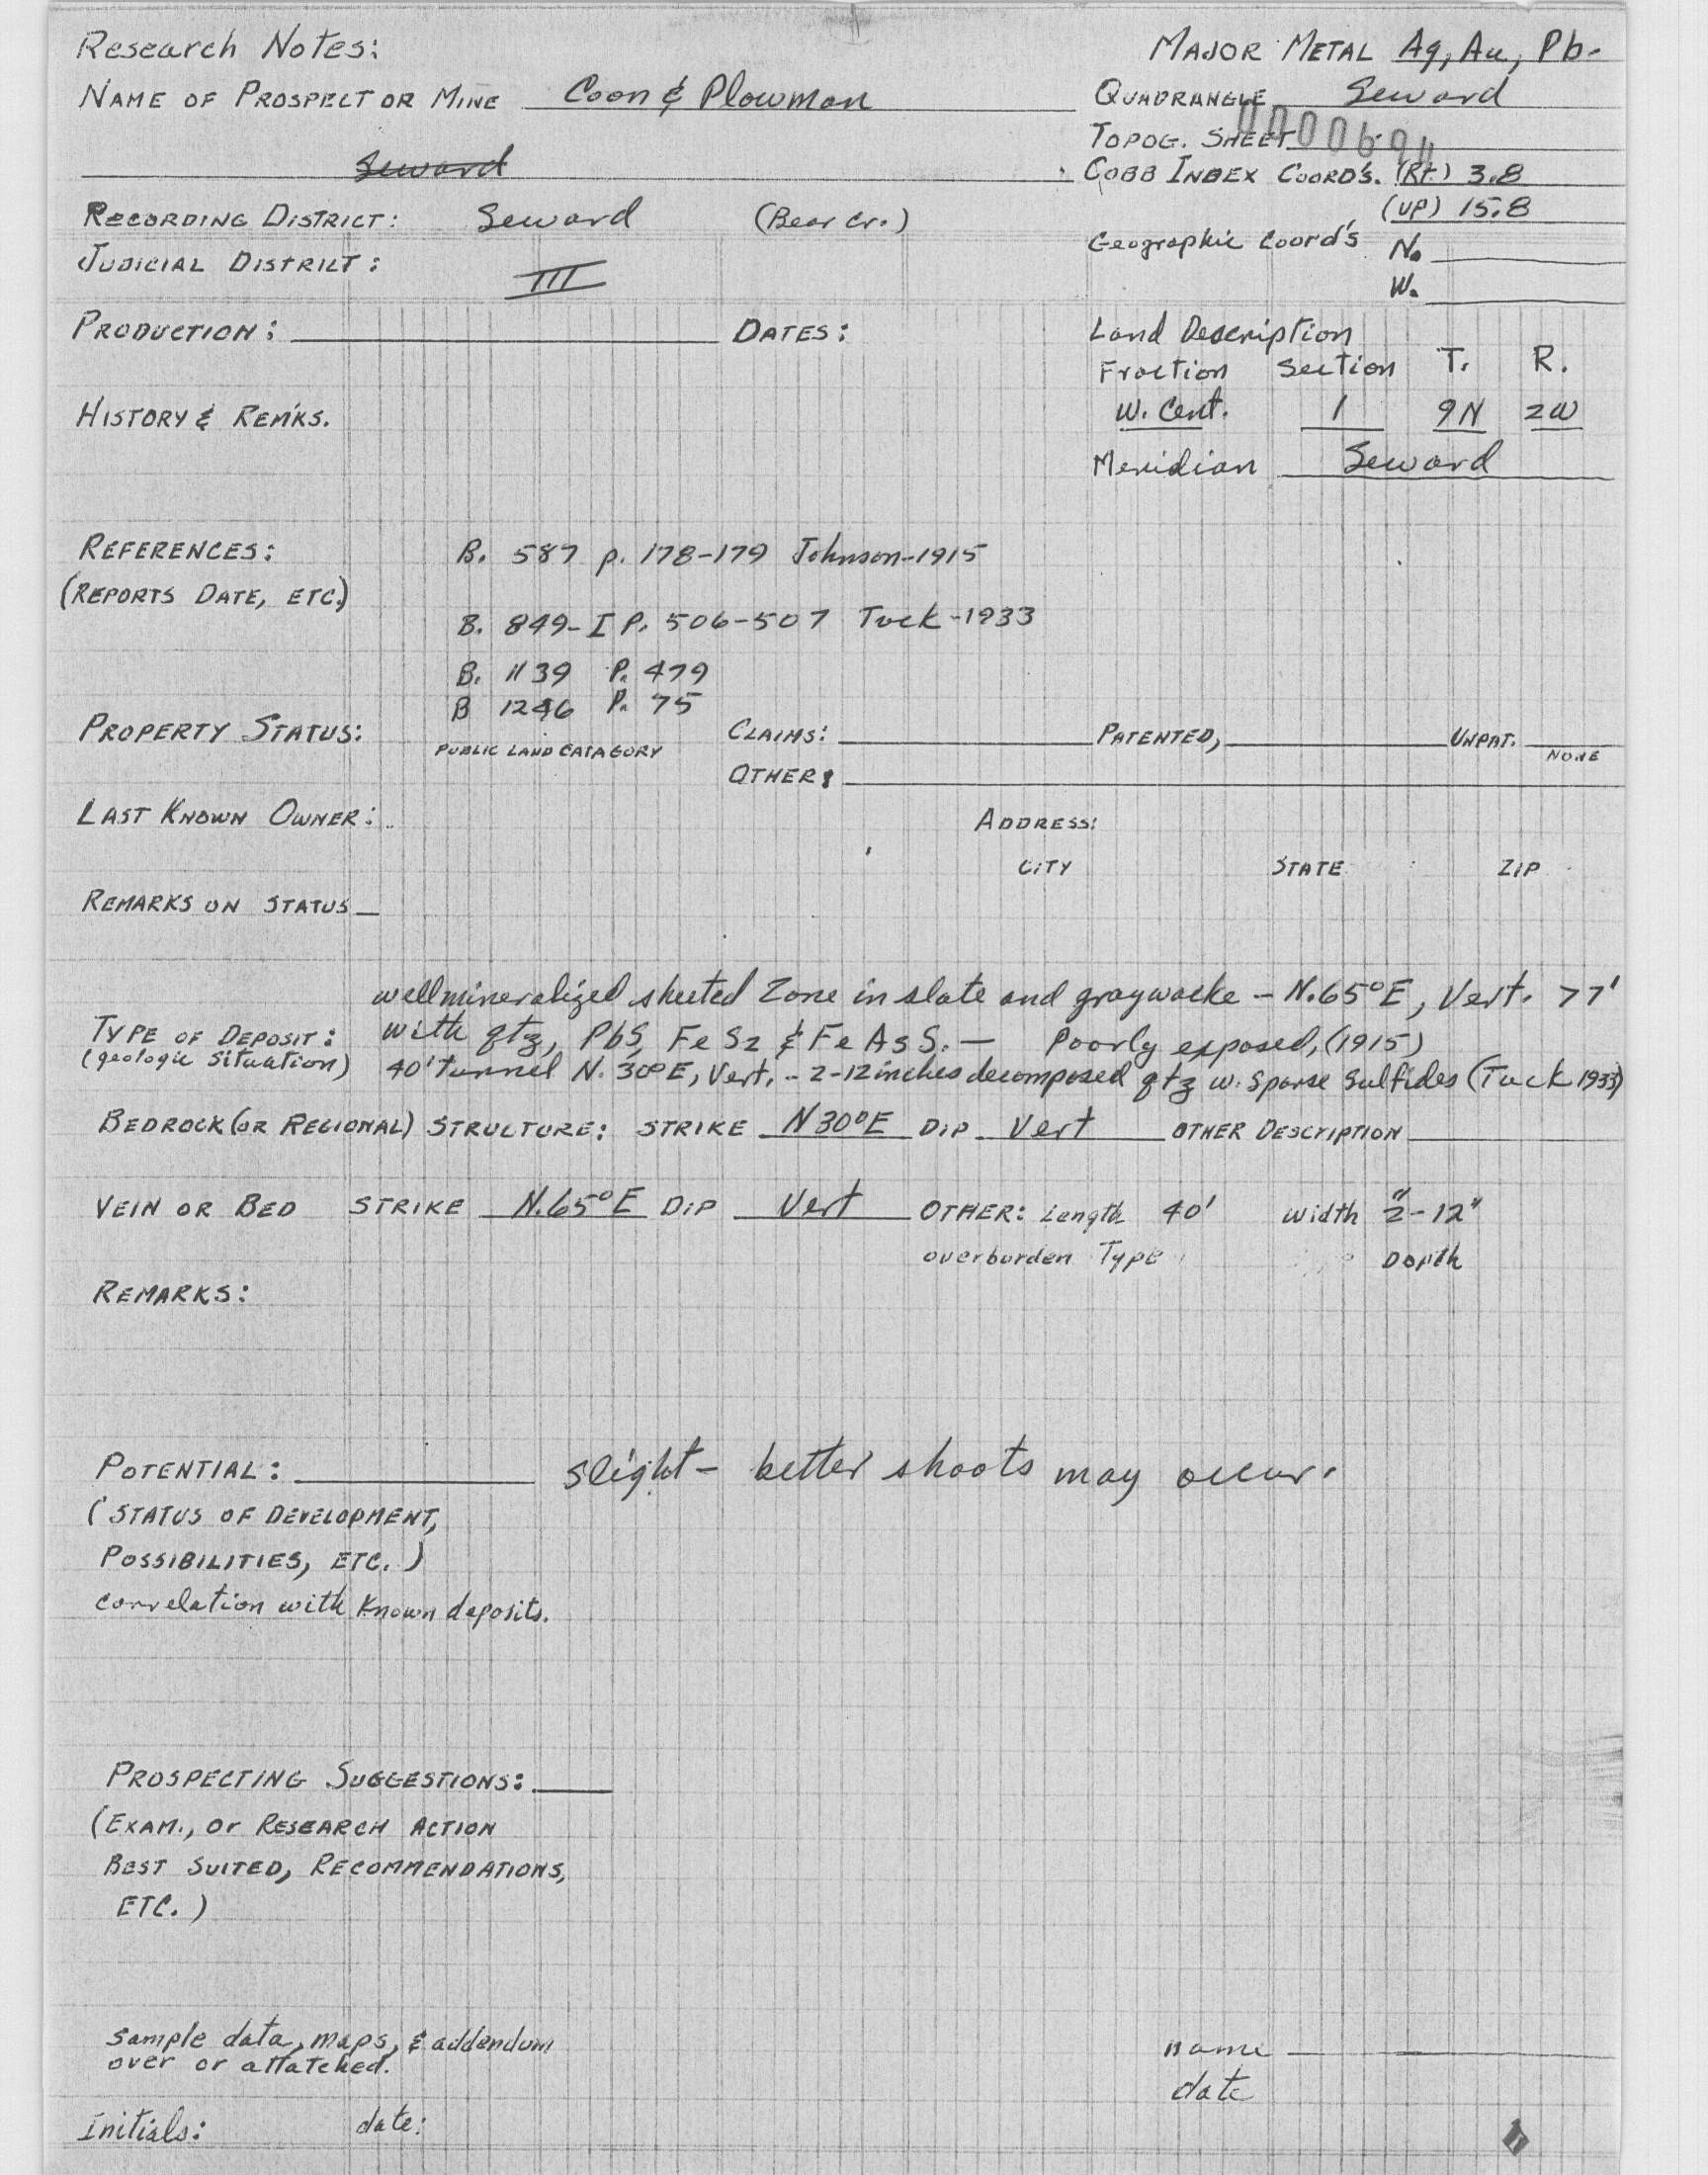 Research Notes:
MAJOR METAL Ag, Au, Pb-
NAME OF PROSPECT OR MINE Coon & Plowman
QUADRANGLE Seward
TOPOG. SHEET
Seward
COBB INDEX COORD'S. (Rt.) 3.8
(UP) 15.8
RECORDING DISTRICT: Seward (Bear Cr.)
Geographic Coord's N.
W.
JUDICIAL DISTRICT: III
PRODUCTION: DATES:
Land Description
Fraction Section T. R.
HISTORY & REM'KS.
W. Cent. 1 9N 2W
Meridian Seward
REFERENCES: B. 587 p. 178-179 Johnson-1915
(REPORTS DATE, ETC.)
B. 849-I P. 506-507 Tuck-1933
B. 1139 P. 479
B 1246 P. 75
PROPERTY STATUS: PUBLIC LAND CATAGORY CLAIMS: PATENTED, UNPAT. NONE
OTHER:
LAST KNOWN OWNER: ADDRESS:
CITY STATE ZIP
REMARKS ON STATUS
wellmineralized sheeted Zone in slate and graywacke - N.65°E, Vert. >7'
TYPE OF DEPOSIT: with qtz, PbS, FeS2 & FeAsS. — Poorly exposed, (1915)
(geologic situation) 40' tunnel N. 30°E, Vert. - 2-12 inches decomposed qtz w. sparse sulfides (Tuck 1933)
BEDROCK (OR REGIONAL) STRUCTURE: STRIKE N30°E DIP Vert OTHER DESCRIPTION
VEIN OR BED STRIKE N.65°E DIP Vert OTHER: Length 40' Width 2"-12"
overburden Type Depth
REMARKS:
POTENTIAL: slight - better shoots may occur.
(STATUS OF DEVELOPMENT,
POSSIBILITIES, ETC.)
correlation with known deposits.
PROSPECTING SUGGESTIONS:
(EXAM., Or RESEARCH ACTION
BEST SUITED, RECOMMENDATIONS,
ETC.)
sample data, maps, & addendum
over or attatched.
name
date
Initials: date: